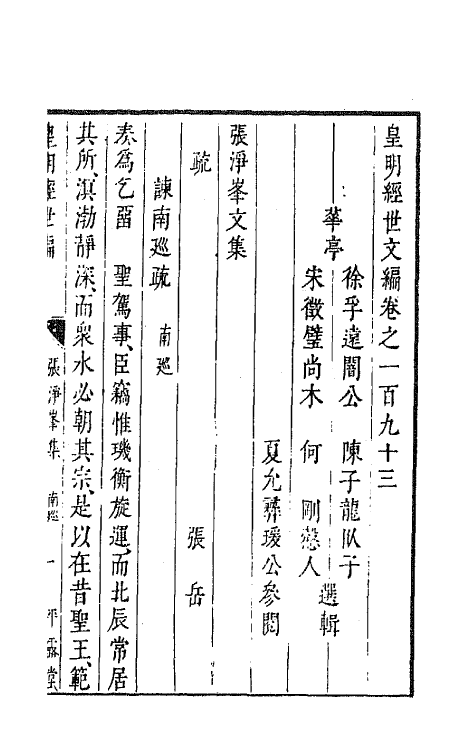 皇明經世文編卷之一百九十三
華亭
徐孚遠闇公 陳子龍臥子
宋徵璧尚木 何 剛慤人
選輯
夏允彝瑗公參閱
張淨峯文集
疏 張岳
諫南巡疏 南巡
奏爲乞畱 聖駕事、臣竊惟璣衡旋運、而北辰常居
其所、溟渤靜深、而衆水必朝其宗、是以在昔聖王、範
皇明經世編 張淨峯集 南巡 一 平露堂